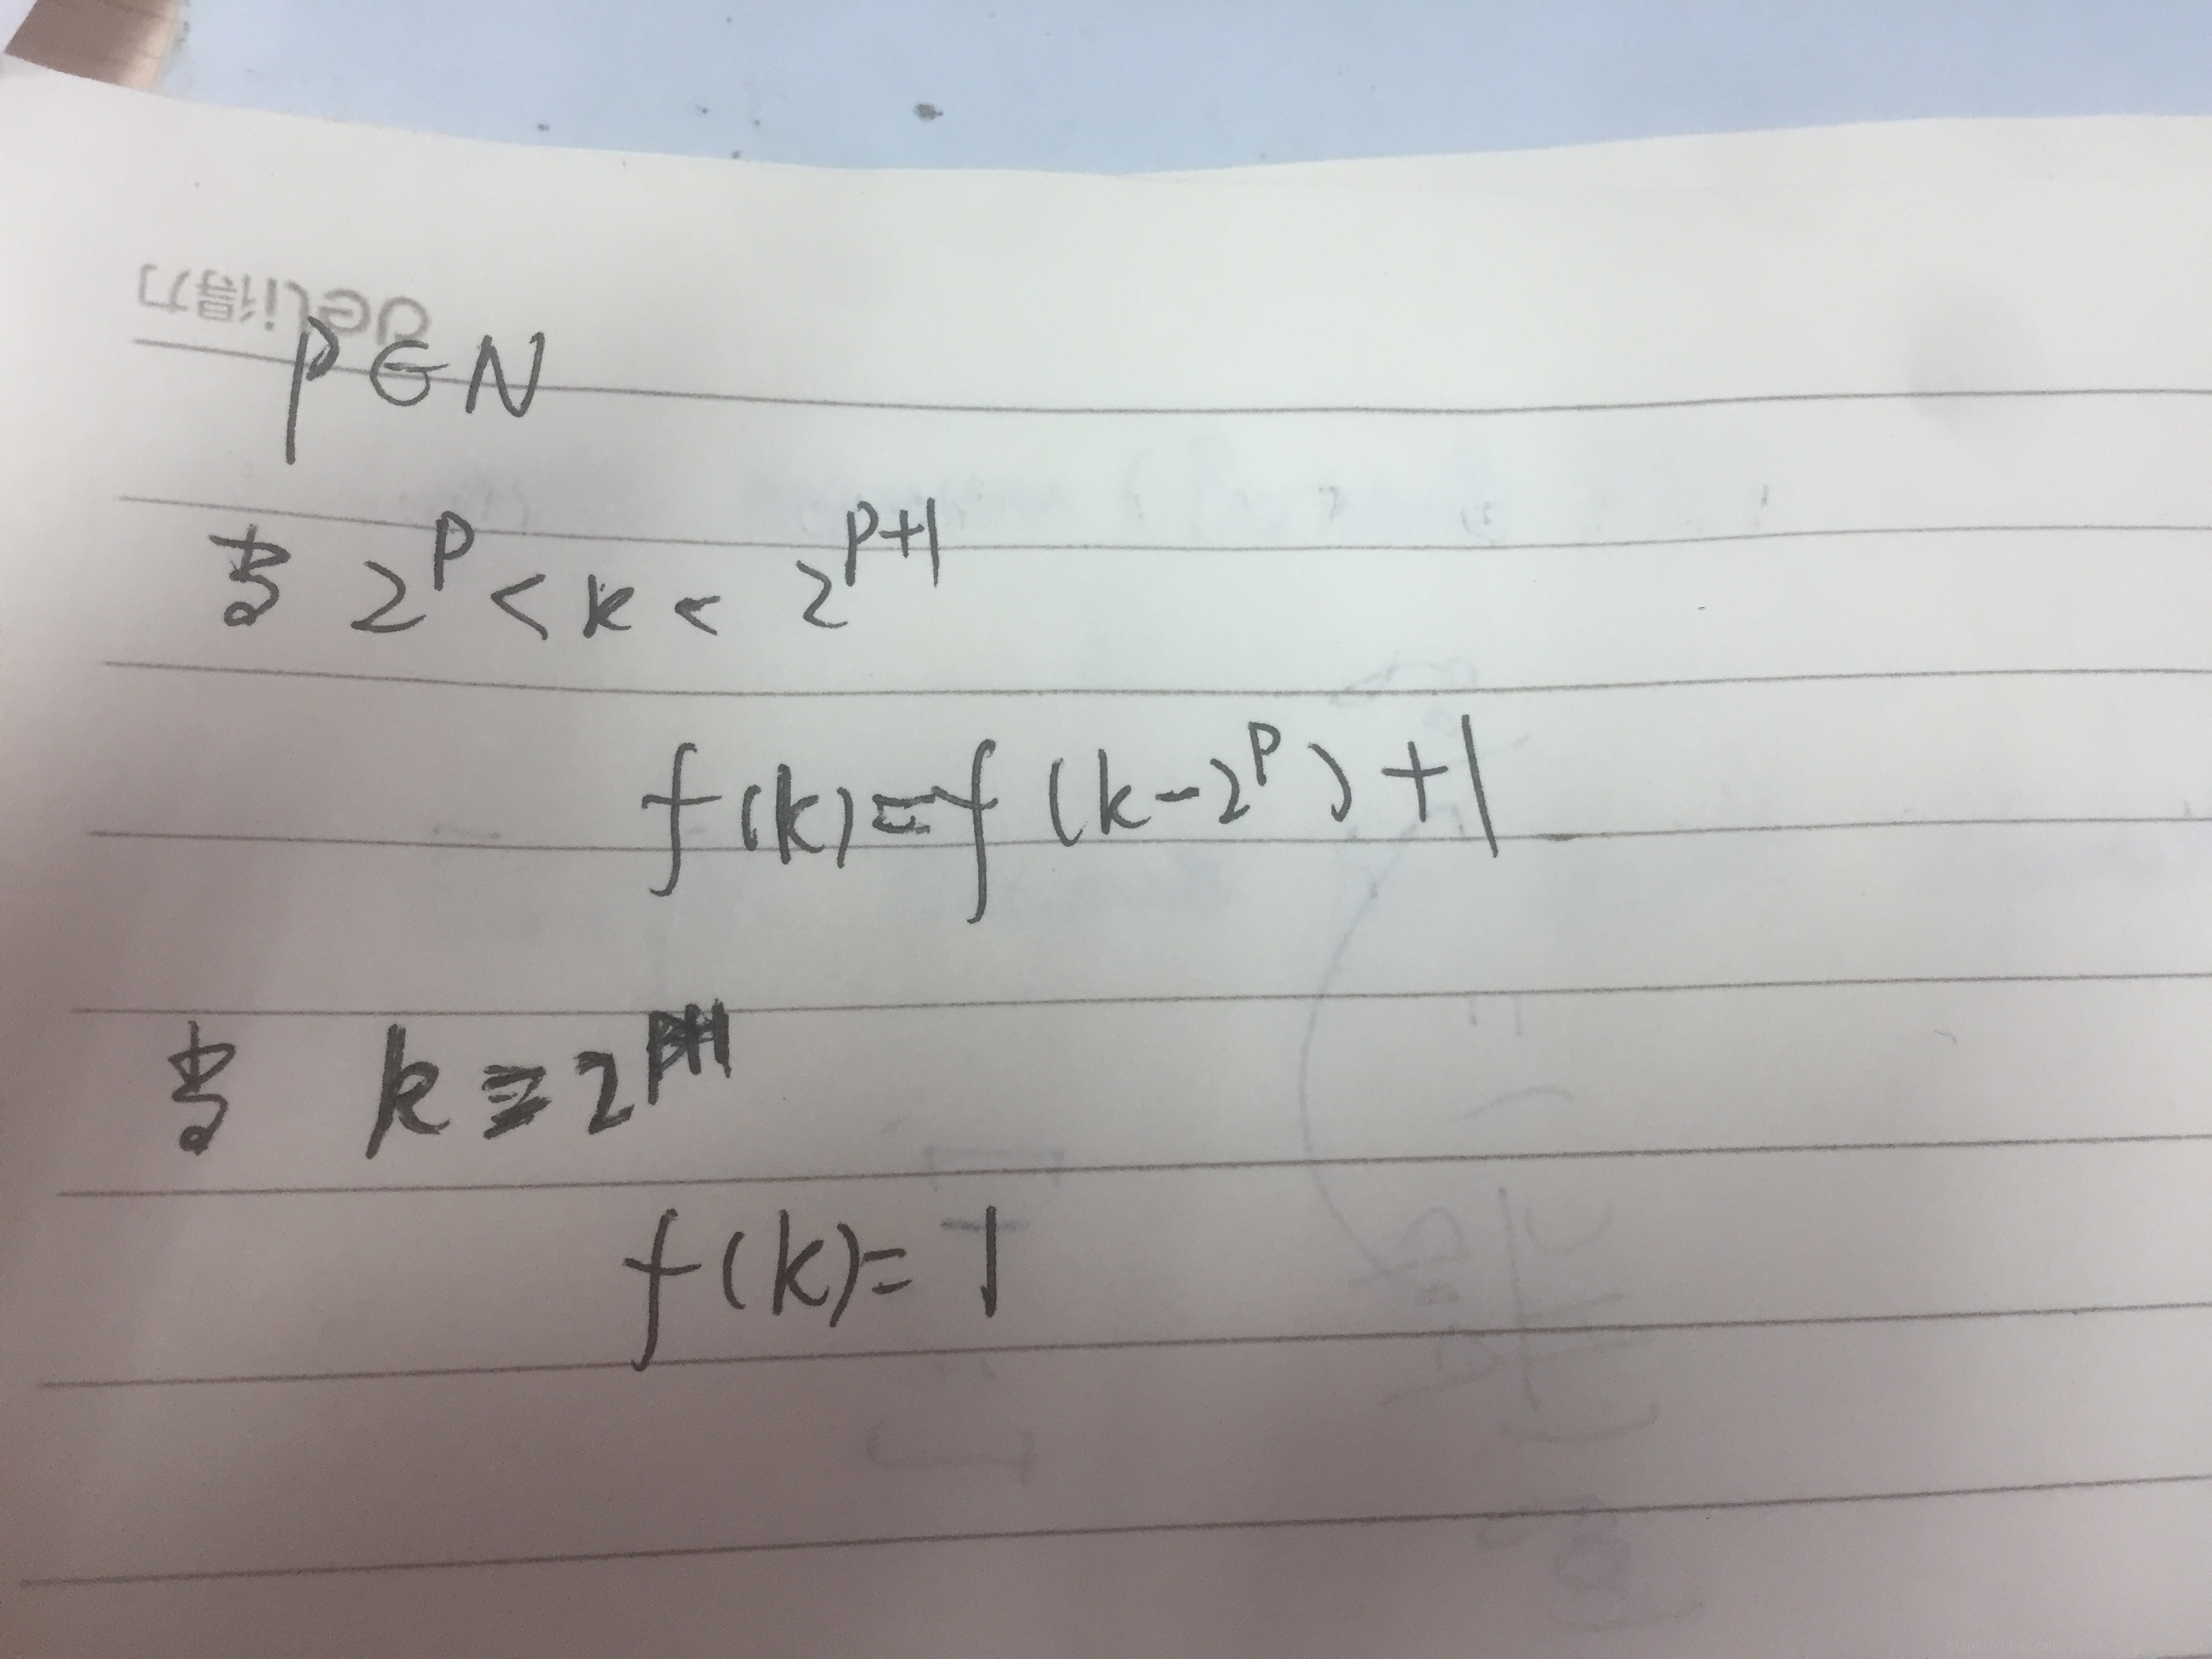 deli得力
P∈N
当 2^P < k < 2^{P+1}
f(k)=f(k-2^P)+1
当 k = 2^{P+1}
f(k)=1